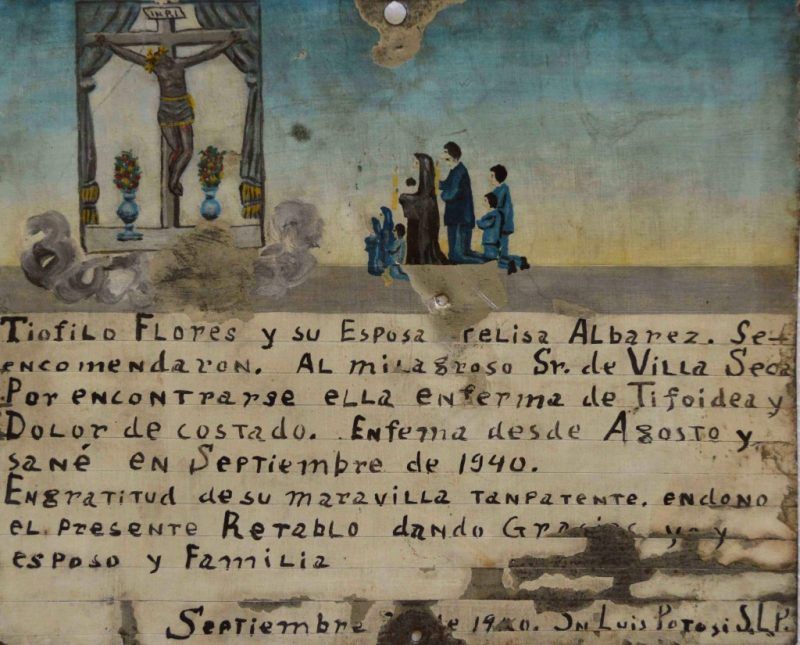 INRI
Tiofilo Flores y su Esposa relisa Albarez. Se-
encomendaron. Al milagroso Sr. de Villa Seca
Por encontrarse ella enferma de Tifoidea y
Dolor de costado. Enfema desde Agosto y
sané en Septiembre de 1940.
Engratitud de su maravilla tanpatente. endono
el presente Retablo dando Gracias yo y
esposo y Familia
Septiembre de 1940. Sn Luis Potosi S.L.P.